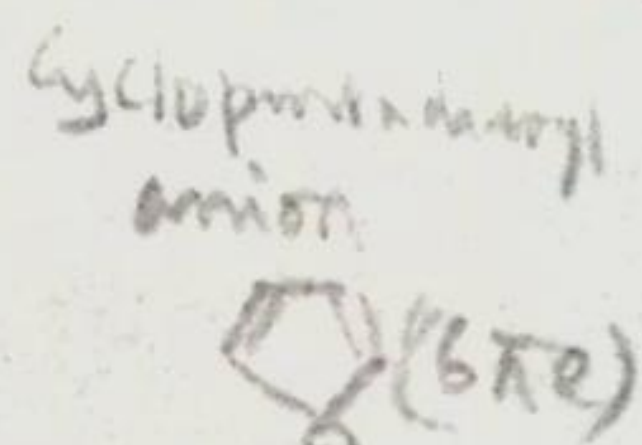 Cyclopentadienyl
anion
(6πe)